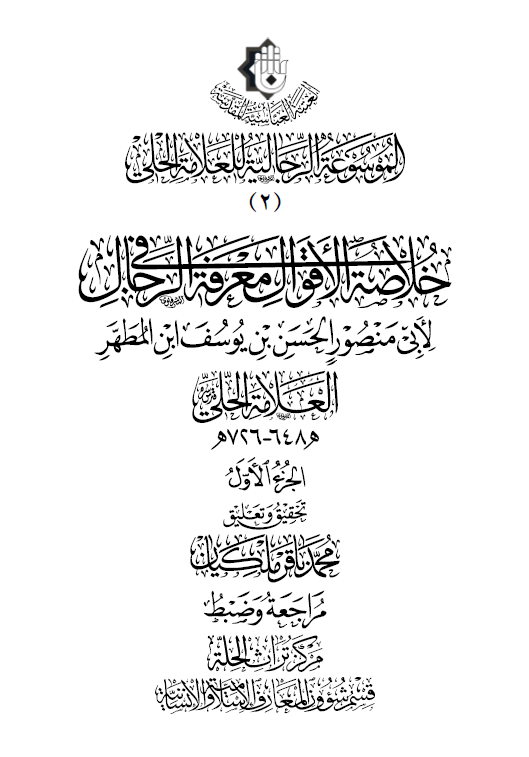 العتبة العباسية المقدسة
الموسوعة الرجالية للعلامة الحلي
(٢)
خلاصة الأقوال في معرفة الرجال
لِأَبِي مَنْصُورٍ الحَسَنِ بْنِ يُوسُفَ ابْنِ المُطَهَّرِ
العَلَّامَةِ الحِلِّيِّ
٦٤٨-٧٢٦هـ
الجُزءُ الأَوَّلُ
تَحْقِيقُ وَتَعْلِيق
مُحَمَّد بَاقِر مَلَكِيَان
مُرَاجَعَةُ وَضَبْطُ
مَرْكَزُ تُرَاثِ الحِلَّةِ
قِسْمُ شُؤُونِ المَعَارِفِ الإِسْلَامِيَّةِ وَالإِنْسَانِيَّةِ